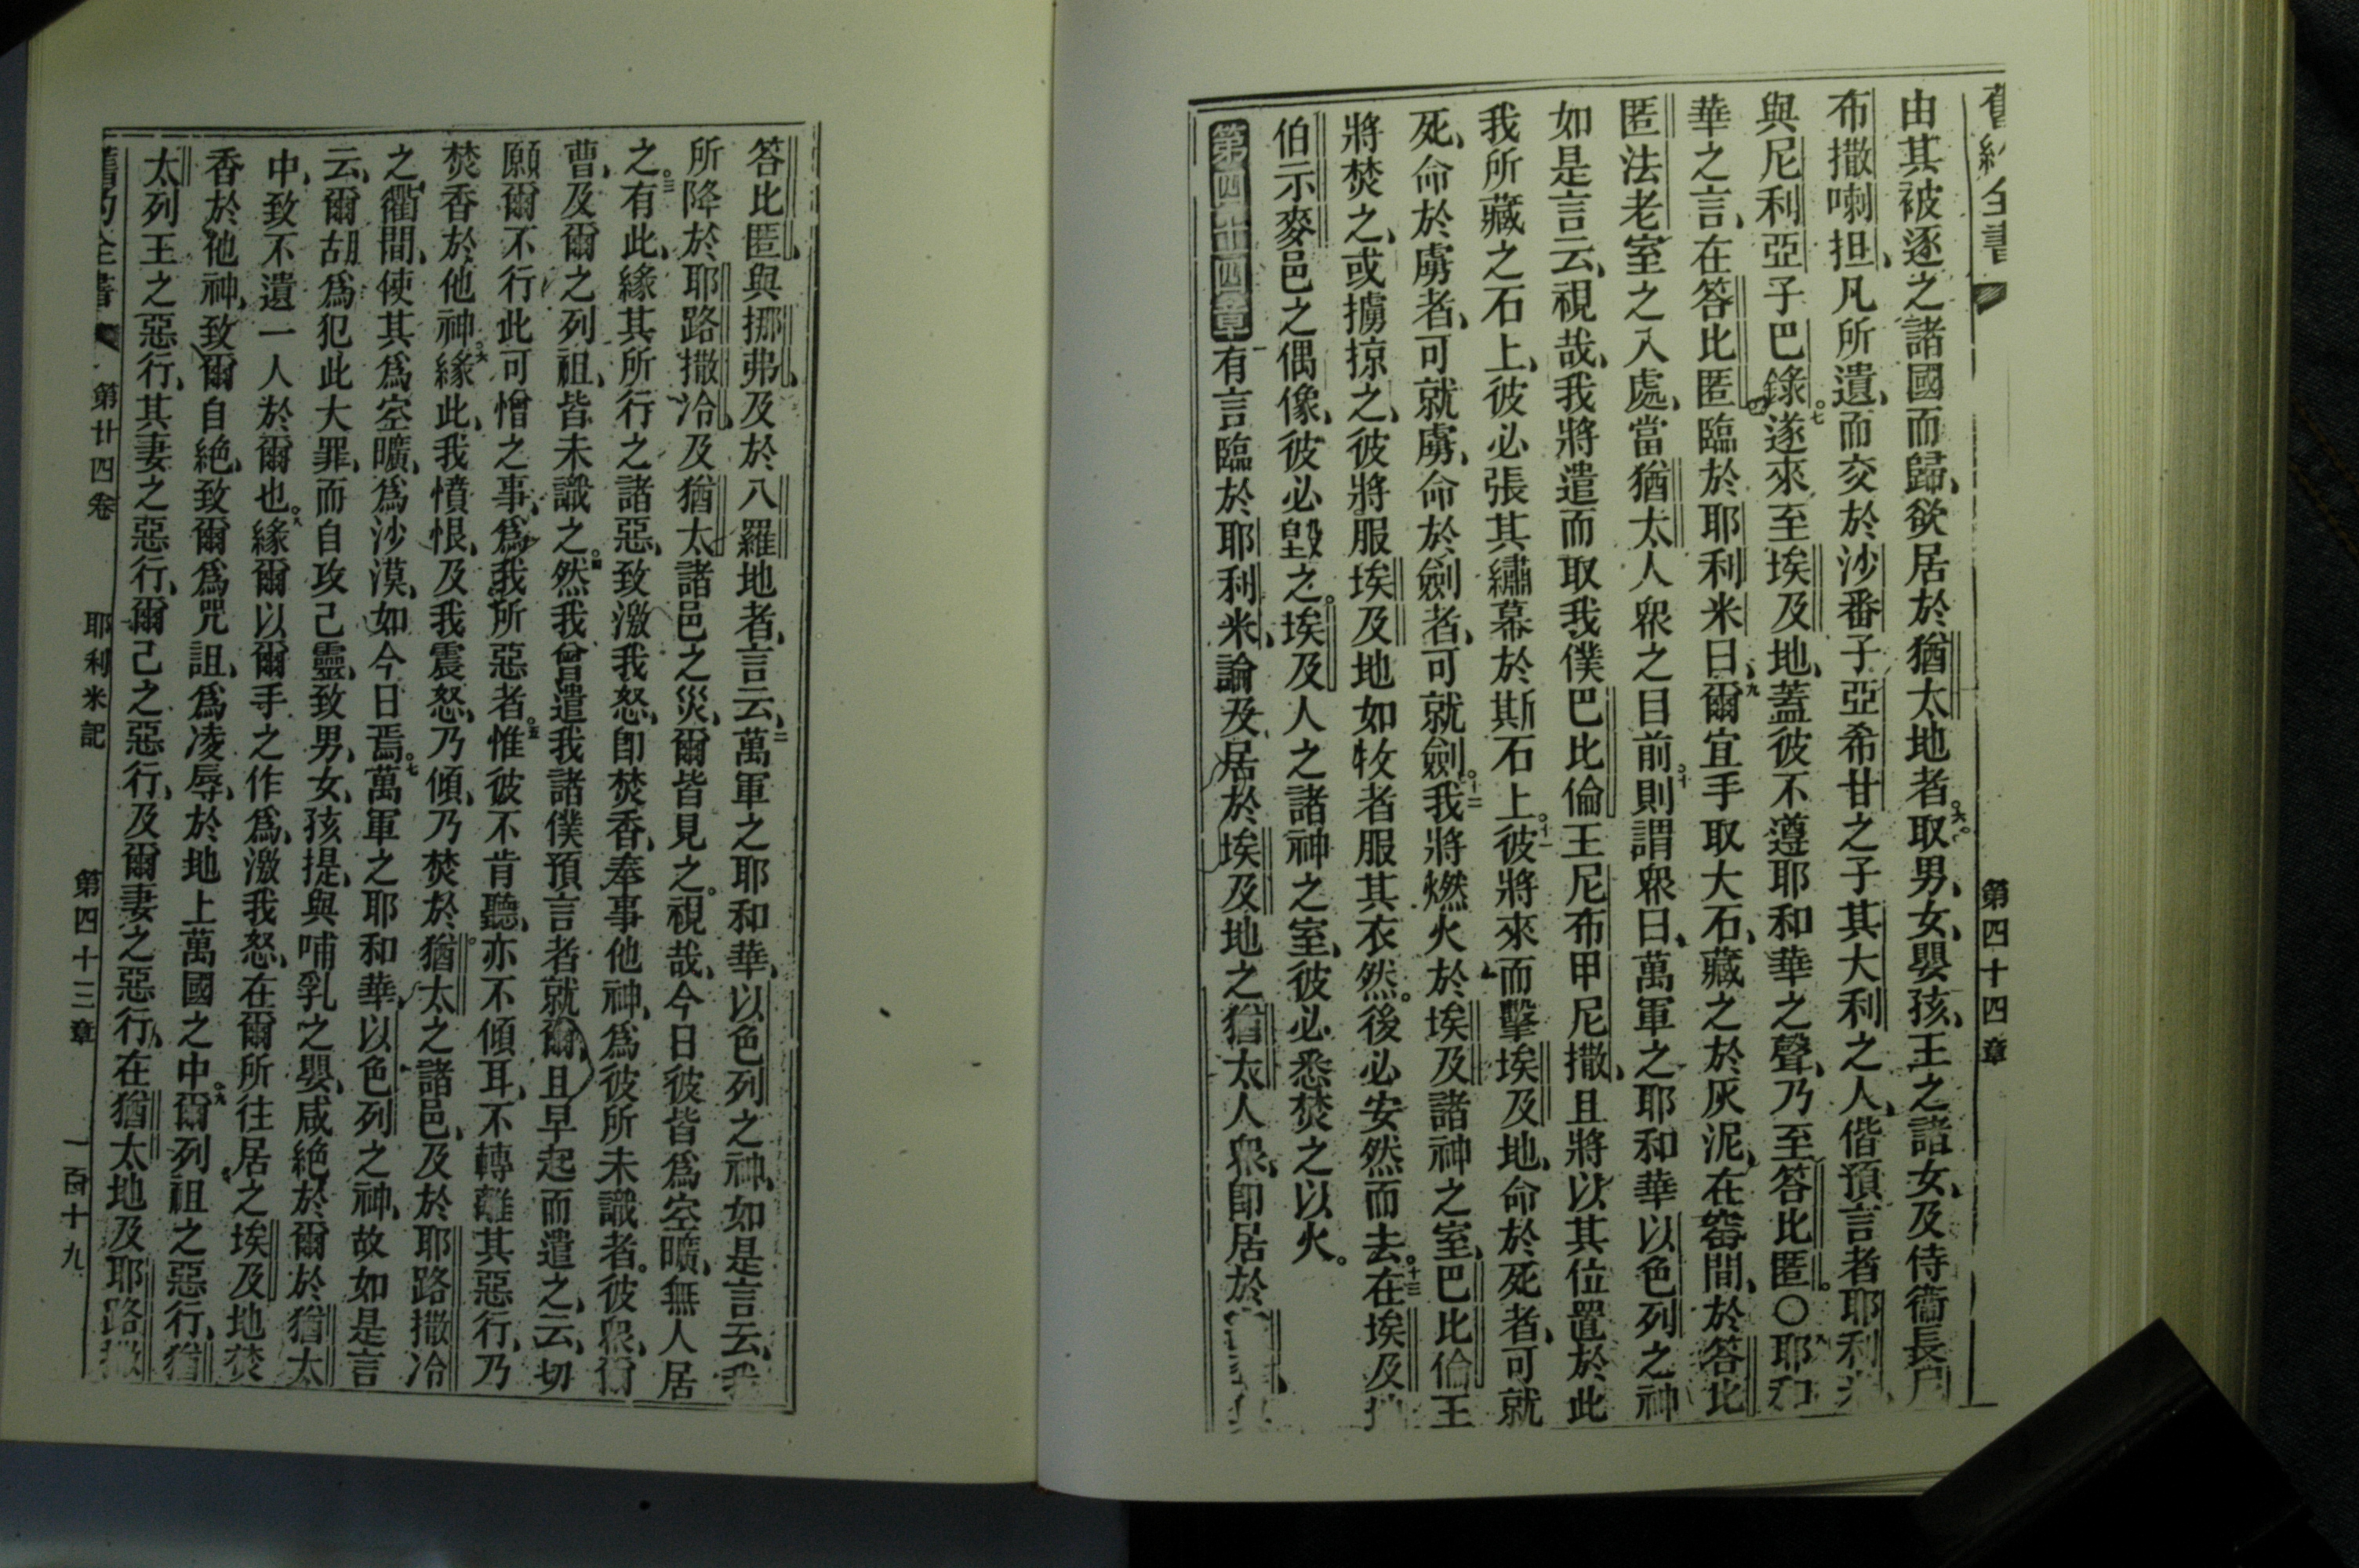 舊約全書 第四十四章
由其被逐之諸國而歸、欲居於猶太地者。六取男、女、嬰孩、王之諸女、及侍衞長尼
布撒喇担、凡所遺、而交於沙番子亞希甘之子其大利之人、偕預言者耶利米、
與尼利亞子巴錄。七遂來至埃及地、蓋彼不遵耶和華之聲、乃至答比匿。〇八耶和
華之言、在答比匿臨於耶利米曰、九爾宜手取大石、藏之於灰泥、在窰間、於答比
匿法老室之入處、當猶太人眾之目前。十則謂眾曰、萬軍之耶和華以色列之神
如是言云、視哉、我將遣而取我僕巴比倫王尼布甲尼撒、且將以其位置於此
我所藏之石上、彼必張其繡幕於斯石上。十一彼將來而擊埃及地、命於死者、可就
死、命於虜者、可就虜、命於劍者、可就劍。十二我將燃火於埃及諸神之室、巴比倫王
將焚之、或擄掠之、彼將服埃及地如牧者服其衣然。後必安然而去。十三在埃及
伯示麥邑之偶像、彼必毀之。埃及人之諸神之室、彼必悉焚之以火。
第四十四章 一有言臨於耶利米、論及居於埃及地之猶太人眾、即居於
答比匿、與挪弗、及於八羅地者、言云、二萬軍之耶和華、以色列之神、如是言云、我
所降於耶路撒冷、及猶太諸邑之災、爾皆見之。視哉、今日彼皆爲空曠、無人居
之。三有此、緣其所行之諸惡、致激我怒、卽焚香、奉事他神、爲彼所未識者。彼眾、爾
曹、及爾之列祖、皆未識之。四然我曾遣我諸僕預言者就爾、且早起而遣之、云、切
願爾不行此可憎之事、爲我所惡者。五惟彼不肯聽、亦不傾耳、不轉離其惡行、乃
焚香於他神。六緣此、我憤恨、及我震怒、乃傾、乃焚於猶太之諸邑、及於耶路撒冷
之衢間、使其爲空曠、爲沙漠、如今日焉。七萬軍之耶和華、以色列之神、故如是言
云、爾胡爲犯此大罪、而自攻己靈、致男、女、孩提、與哺乳之嬰、咸絶於爾於猶太
中、致不遺一人於爾也。八緣爾以爾手之作爲、激我怒、在爾所往居之埃及地焚
香於他神、致爾自絶、致爾爲咒詛、爲凌辱、於地上萬國之中。九爾列祖之惡行、猶
太列王之惡行、其妻之惡行、爾己之惡行、及爾妻之惡行、在猶太地及耶路撒
舊約全書 第廿四卷 耶利米記 第四十三章 一百十九